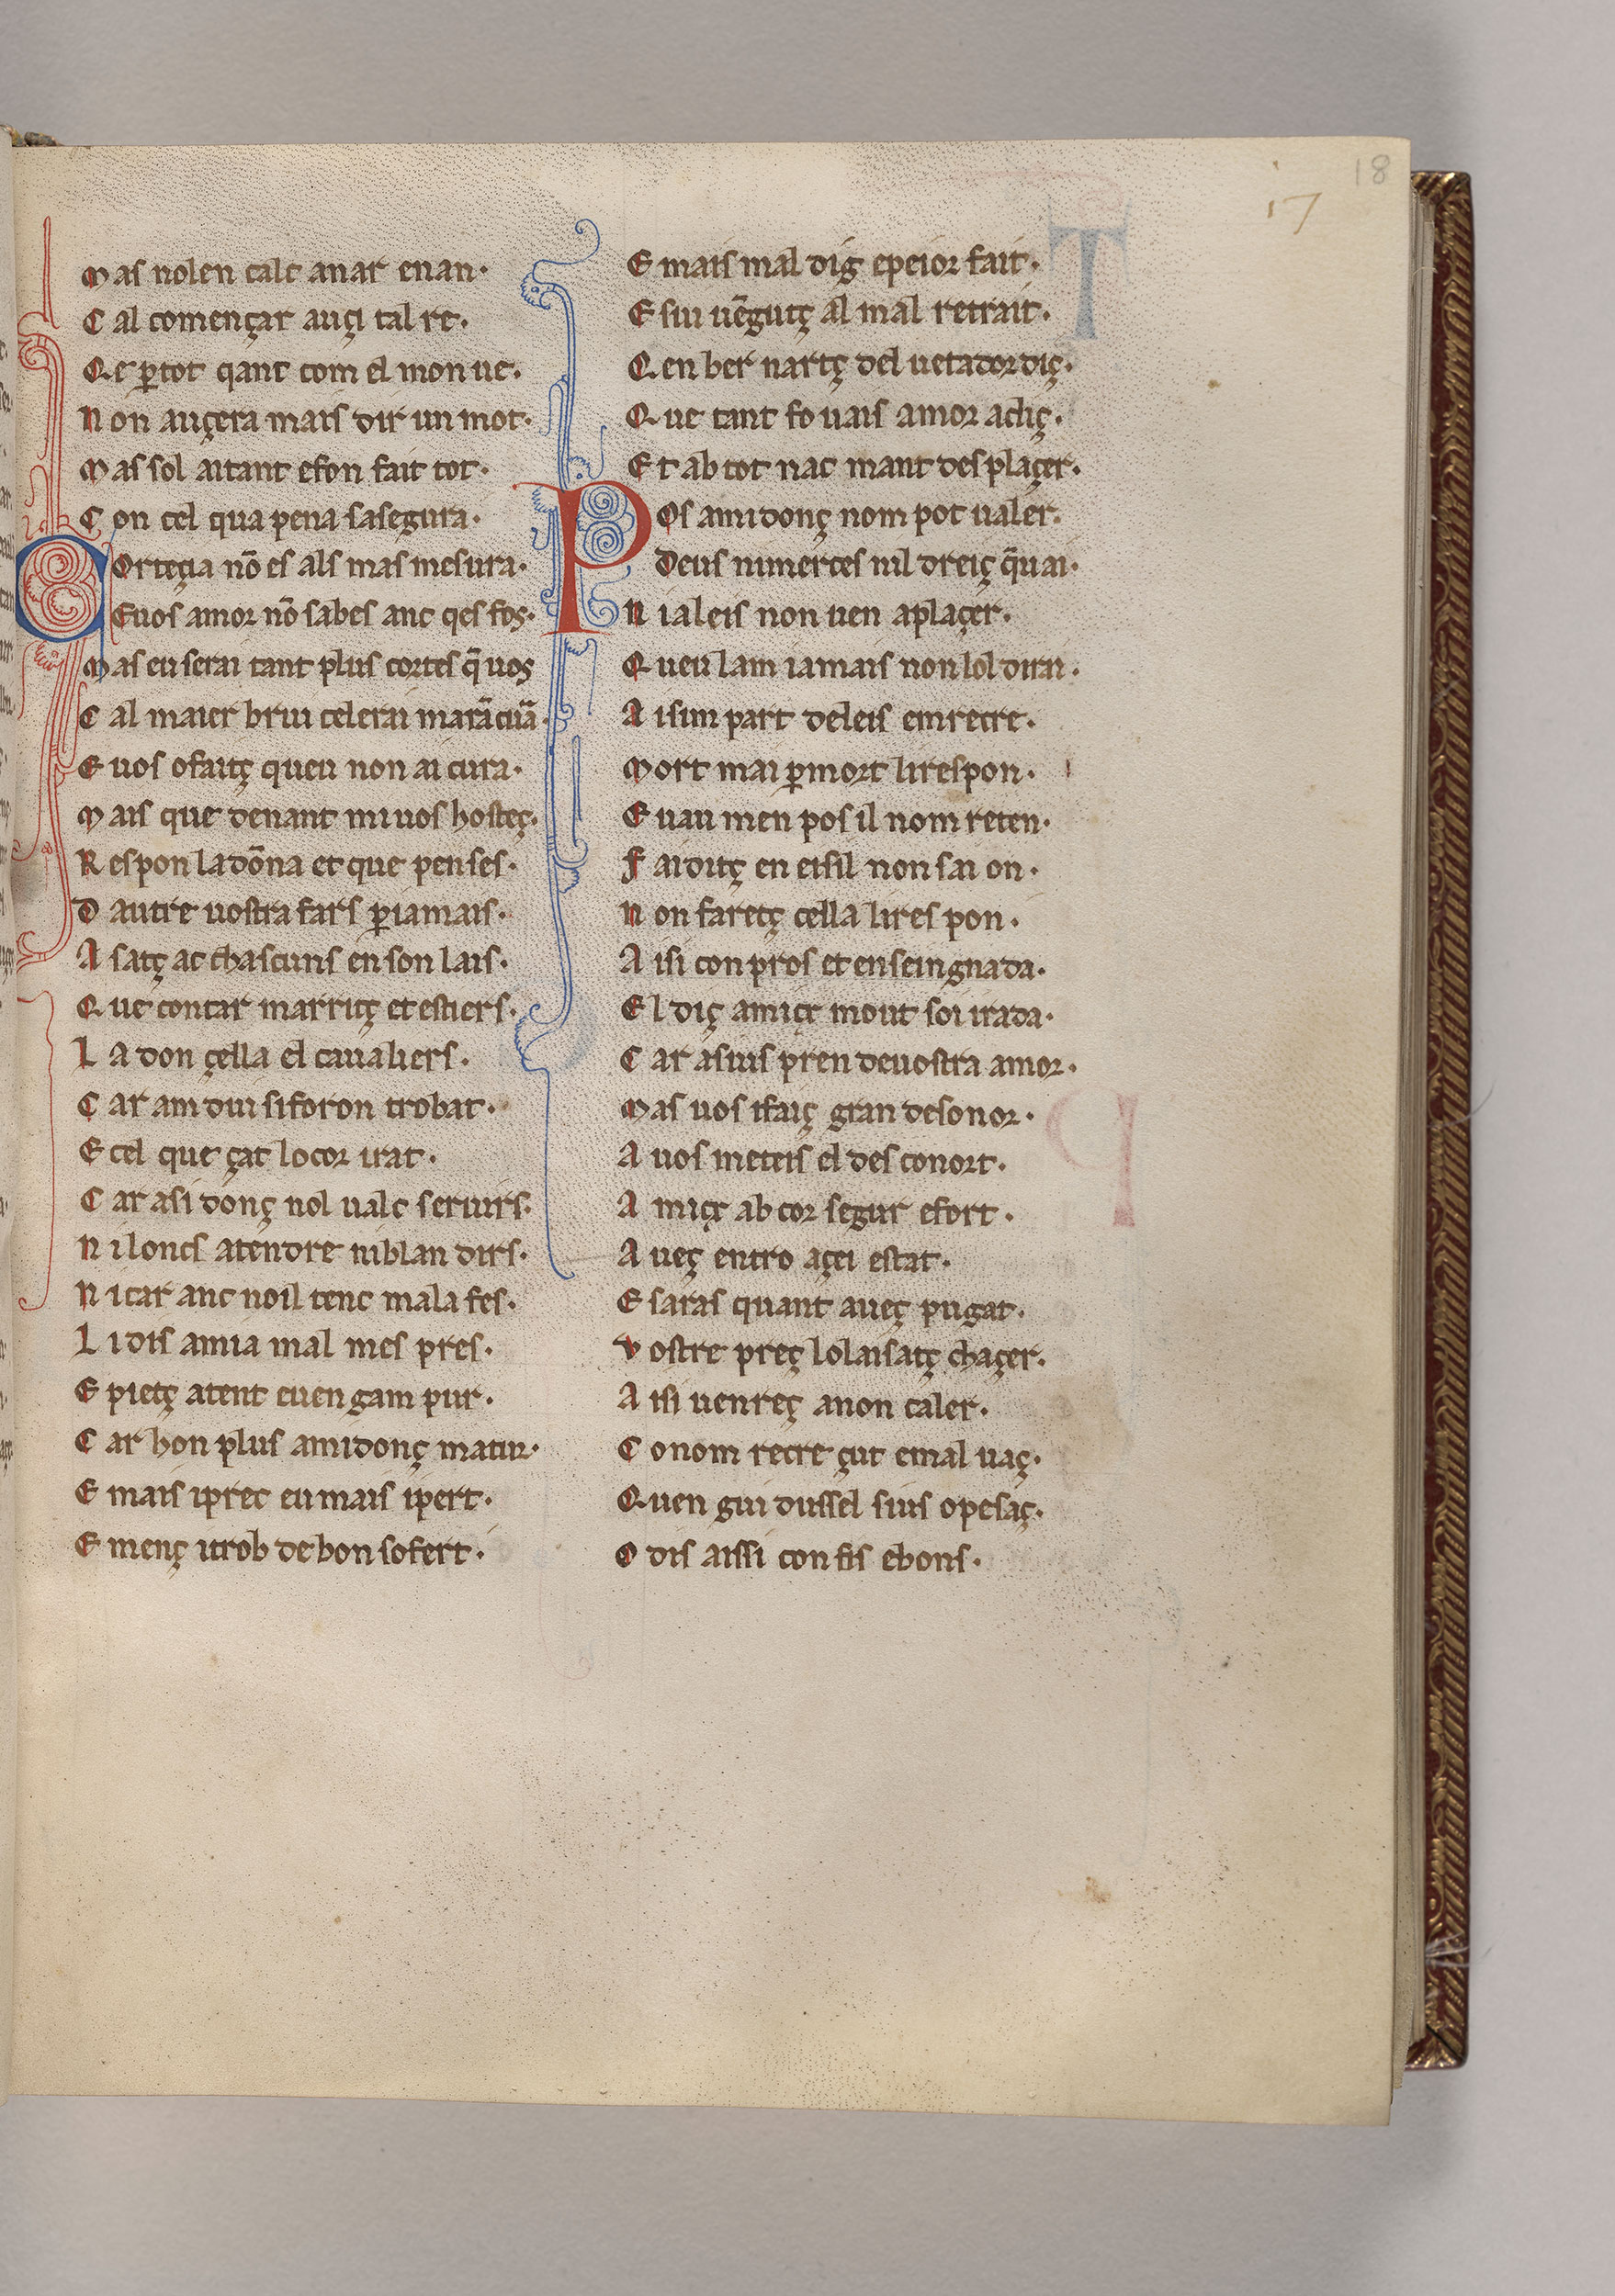 18
17
Mas nolen calc anar enan·
C al començar auçi tal re·
Qe ꝑtot qant com el mon ue·
Non auçera mais dir un mot·
Mas sol aitant efon fait tot·
C on cel qua pena sasegura·
Orteçia nō es als mas mesura·
Euos amor nō sabes anc qes fos·
Mas eu serai tant plus cortes q̄ uos
C al maier brui celerai marācurā·
E uos ofaitç queu non ai cura·
Mais que denant mi uos hosteç·
R espon la dōna et que penses·
D autre uostra fars ꝑiamais·
A satç ac chascuns en son lais·
Q ue contar marritç et estiers·
L a don çella el caualiers·
C ar am dui si foron trobat·
E cel que çat locor irat·
C ar asi donç nol ualc seruirs·
N i loncs atendre ni blan dirs·
N i car anc noil tenc mala fes·
L i dis amia mal mes pres·
E pietç atent euen gam pur·
C ar hon plus ami donç matur·
E mais iprec eu mais ipert·
E menç itrob de bon sofert·
E mais mal dig e peior fait·
E siu uēgutç al mal retrait·
Q en ber nartç del uetador diç·
Q ue tant fo uais amor acliç·
E t ab tot nac mant desplaçer·
P Os ami donç nom pot ualer·
Deus ni merces nil dreiç q̄u ai·
N i aleis non uen aplaçer·
Q ueu lam iamais non lol dirai·
A isim part deleis em recre·
Mort mai ꝑmort li respon·
E uau men pos il nom reten·
F aiditç en eisil non sai on·
N on faretç cella li res pon·
A isi con pros et enseingnada·
E l diç amicx mout soi irada·
C ar asiuis pren deuostra amor·
Mas uos ifaiç gran desonor·
A uos meteis el des conort·
A micx ab cor segur e fort·
A ueç entro açei estat·
E saras quant aueç pugat·
V ostre preç lo laisatç chaçer·
A isi uenreç anon caler·
C onom recre çut emal uaç·
Q uen gui dussel siuis o pesaç·
O dis aissi con fis ebons·